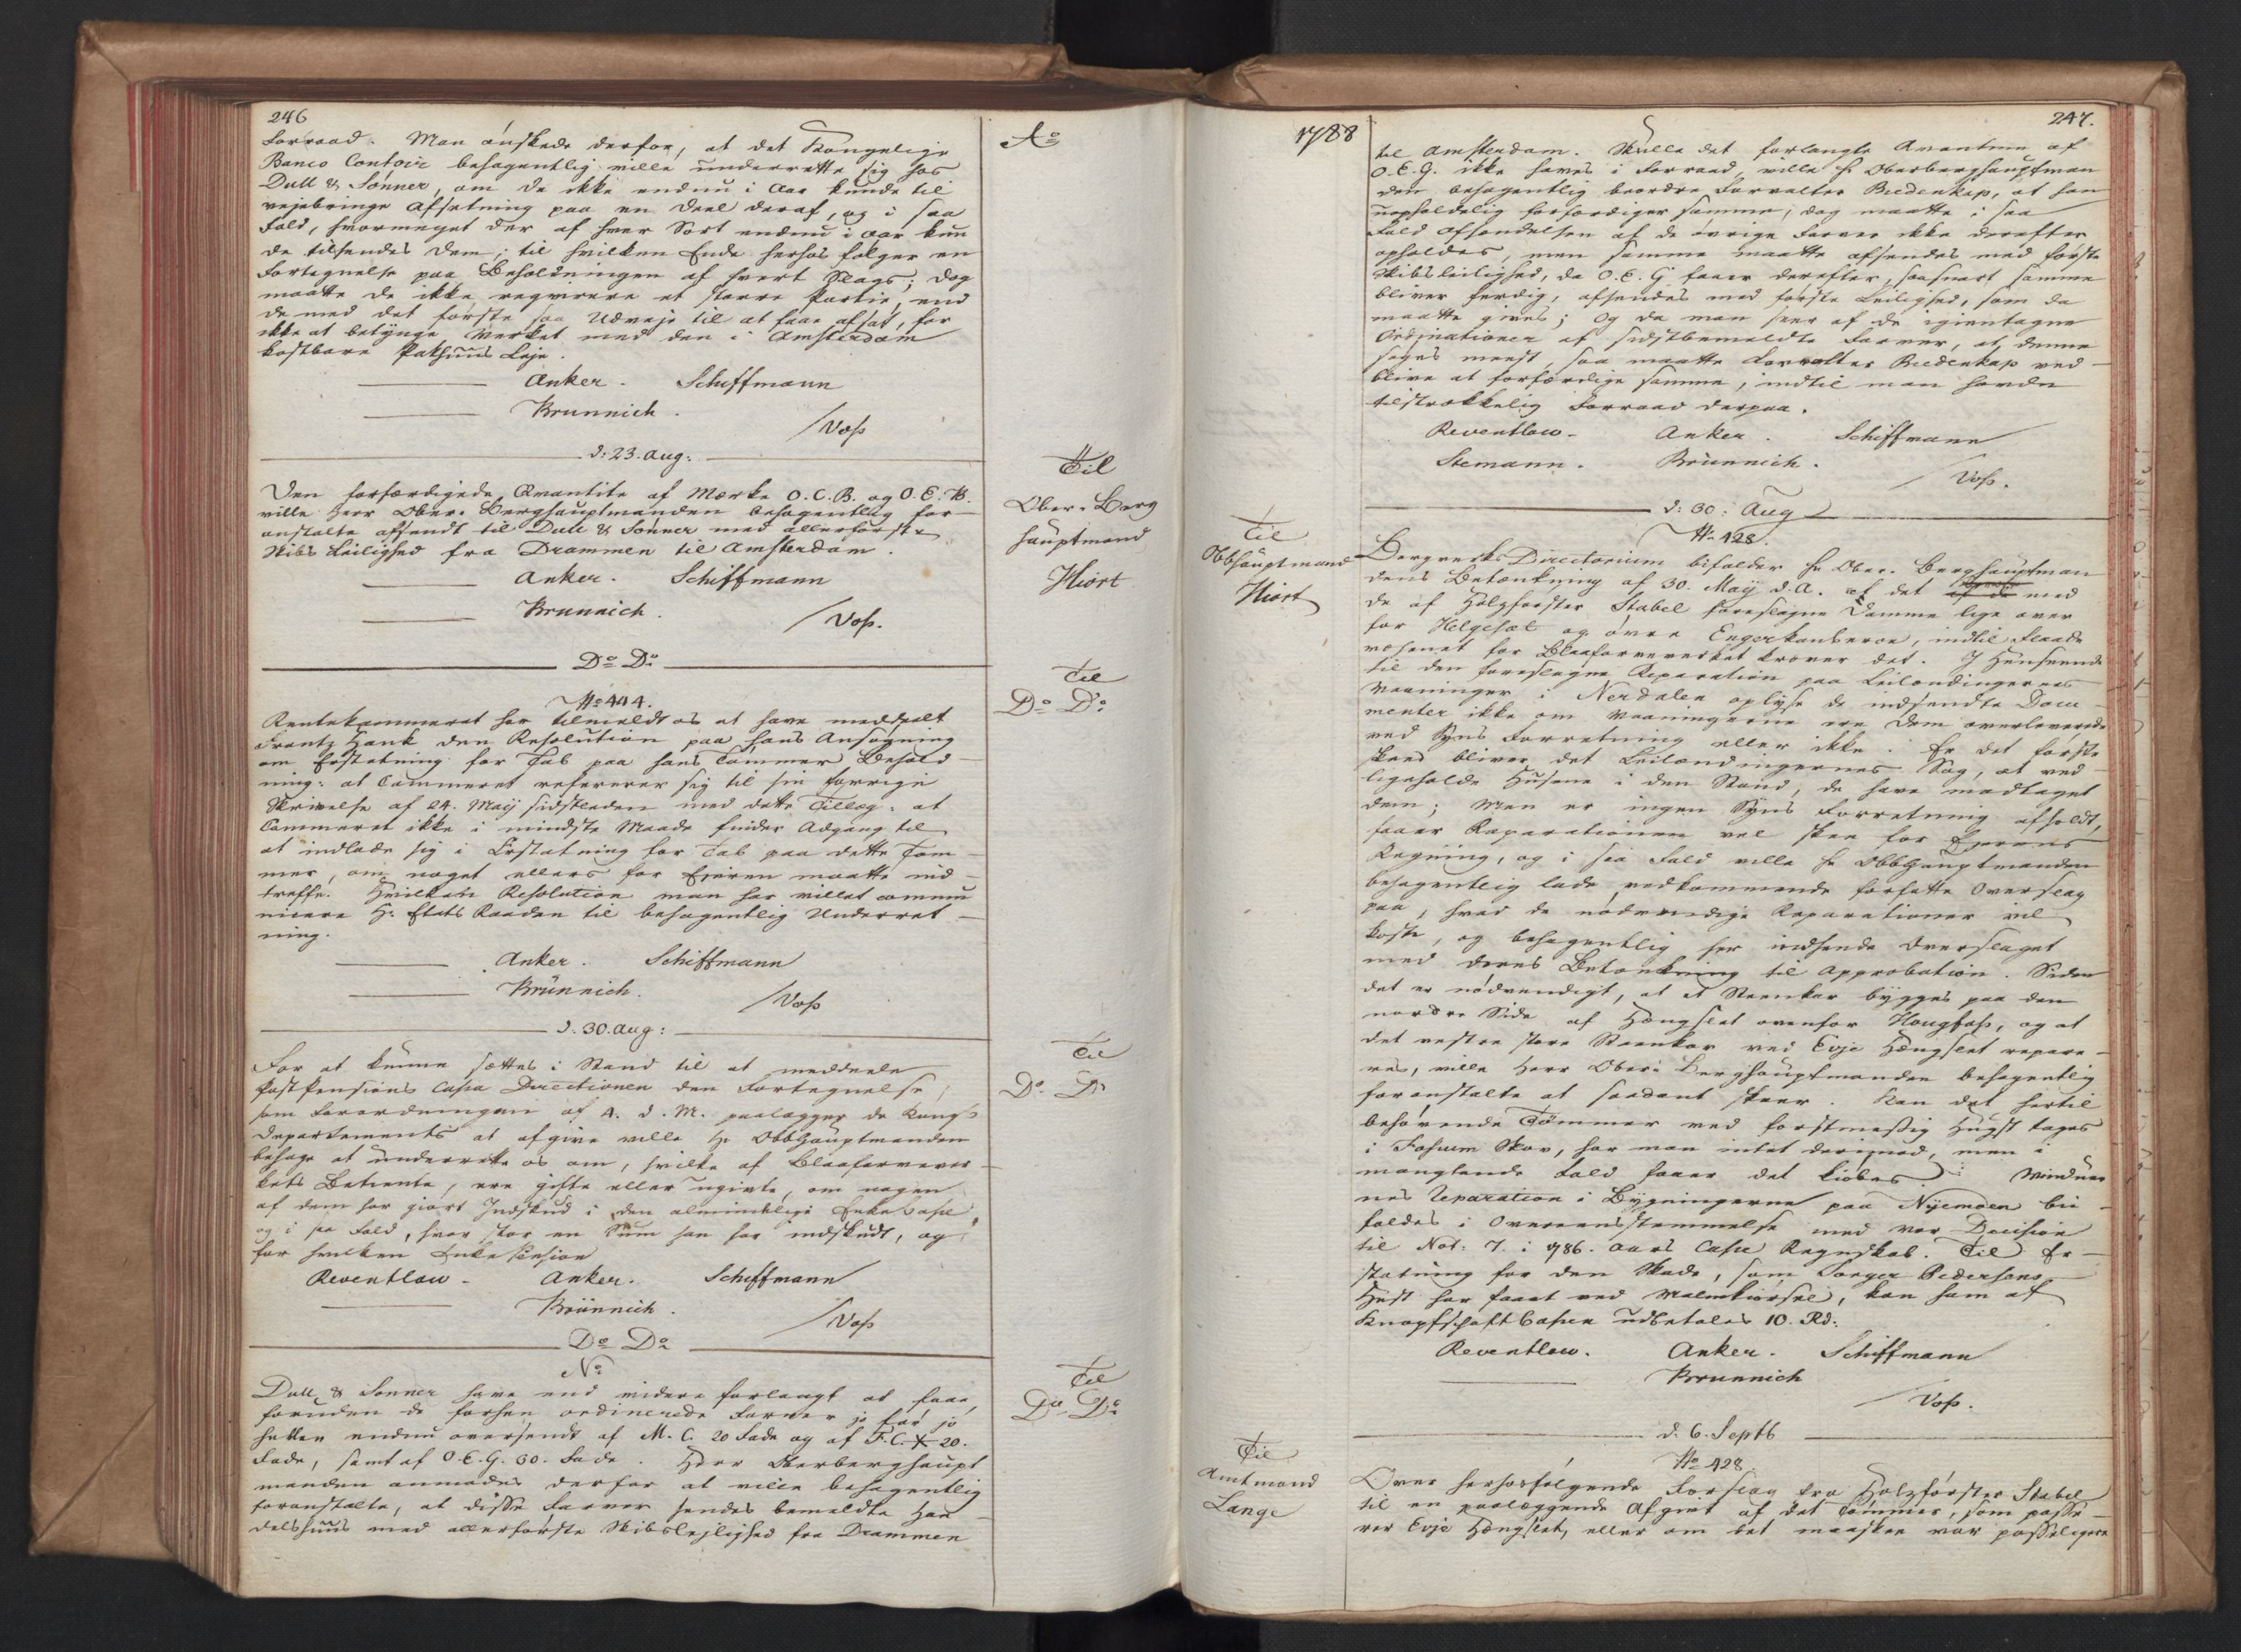 246
Forraad. Man ønskede derfor, at det Kongelige
Banco Contoir behagentlig ville underrette sig hos
Dull & Sønner, om de ikke endnu i Aar kunde til
vejebringe Afsetning paa en Deel deraf, og i saa
Fald, hvormeget der af hver Sort endnu i Aar kun
de tilsendes dem; til hvilken Ende herhos følger en
Fortegnelse paa Beholdningen af hvert Slags; dog
maatte de ikke reqvirere et større Partie, end
de med det første saa Udveje til at faae afsat, for
ikke at betynge Verket med den i Amsterdam
kostbare Pakhuus Leje.
Anker. Schiffmann
Brünnich.
/Voss
d: 23. Aug:
Den forfærdigede Qvantite af Mærke O.C.B. og O.E.B.
ville Herr Ober-Berghauptmanden behagentlig for-
anstalte afsendt til Dull & Sønner med allerførste
Skibs Leilighed fra Drammen til Amsterdam.
Anker. Schiffmann
Brunnich.
/Voss.
Do Do
No 444.
Rentekammeret har tilmeldt os at have meddeelt
Frantz Hank den Resolution paa hans Ansøgning
om Erstatning for Tab paa hans Tømmer Behold-
ning: at Cammeret refererer sig til sin forrige
Skrivelse af 24. Maij sidstleden med dette Tillæg: at
Cammeret ikke i mindste Maade finder Adgang til
at indlade sig i Erstatning for Tab paa dette Tøm-
mer, om noget ellers for Ejeren maatte ind-
treffe. Hvilken Resolution man har villet commu
nicere Hr Etats Raaden til behagentlig Underret-
ning.
Anker. Schiffmann
Brünnich.
/Voss
d. 30. Aug:
For at kunne sættes i Stand til at meddeele
Post Pensions Cassa Directionen den Fortegnelse,
som Forordningen af 4. d. M. paalægger de Kongl.
Departements at afgive ville Hr ObbHauptmanden
behage at underrette os om, hvilke af Blaafarvever-
kets Betiente, ere gifte eller ugivte, om nogen
af dem har giort Indskud i den almindelige Enke Casse
og i saa Fald, hvor stor en Sum han har indskudt, og
for hvilken Enke Pension
Reventlow. Anker. Schiffmann
Brünnich.
/Voss
Do Do
No
Dull & Sønner have end videre forlangt at faae,
foruden de forhen ordinerede Farver jo før jo
heller endnu oversendt af M.C. 20 Fade og af F.C. 20.
Fade, samt af O.E.G. 30. Fade. Herr Oberberghaupt
manden anmodes derfor at ville behagentlig
foranstalte, at disse Farver sendes bemeldte Han-
delshuus med allerførste Skibslejlighed fra Drammen
Ao
Til
Ober-Berg
hauptmand
Hiort
Til
Do Do
Til
Do Do
Til
Do Do
1788
247.
til Amsterdam. Skulle det forlangte Qvantum af
O.E.G. ikke haves i Forraad, ville Hr Oberberghauptman
den behagentlig beordre Forvalter Bredenkop, at han
uopholdelig forfærdiger samme; dog maatte i saa
Fald Afsendelsen af de øvrige Farver ikke derefter
opholdes, men samme maatte afsendes med første
Skibsleilighed, da O.E.G faaer derefter, saasnart samme
bliver færdig, afsendes med første Leilighed, som da
maatte gives; Og da man seer af de igientagne
Ordinationer af sidstbemeldte Farver, at denne
søges meest, saa maatte Forvalter Bredenkop ved-
blive at forfærdige samme, indtil man havde
tilstrækkelig Forraad derpaa.
Reventlow. Anker. Schiffmann
Stemann. Brünnich.
/Voss.
d: 30: Aug
No 428.
Bergverks Directorium bifalder Hr Ober-Berghauptman
dens Betænkning af 30. Maij d.A. at det med
de af Holzførster Stabel foreslagne Damme lige over
for Helgeset og øvre Engerkansevæ, indtil Flaade
væsenet for Blaafarveverket kræver det. I Henseende
til den foreslagne Reparation paa Leilændingernes
Vaaninger i Nerdalen oplyse de indsendte Docu-
menter ikke om Vaaningerne ere dem overleverede
ved Syns Forretning eller ikke. Er det første
skeed bliver det Leilændingernes Sag, at ved-
ligeholde Husene i den Stand, de have modtaget
dem; Men er ingen Syns Forretning afholdt,
faaer Reparationen vel skee for Ejerens
Regning, og i saa Fald ville Hr ObbHauptmanden
behagentlig lade vedkommende forfatte Overslag
paa, hvad de nødvendige Reparationer vil
koste, og behagentlig her indsende Overslaget
med deres Betænkning til Approbation. Siden
det er nødvendigt, at et Steenkar bygges paa den
nordre Side af Hengslet ovenfor Hougfoss, og at
det vestre store Steenkar ved Evje Hengslet repare-
res, ville Herr Ober-Berghauptmanden behagentlig
foranstalte at saadant skeer. Kan det hertil
behøvende Tømmer ved forstmessig Hugst tages
i Fossum Skov, har man intet derimod, men i
manglende Fald faaer det kiøbes. Vinduer
nes Reparation i Bygningerne paa Nyemoen bi-
faldes i Overeensstemmelse med vor Decision
til Not: 7. i 786. Aars Casse Regnskab. Til Er-
statning for den Skade, som Torger Pedersens
Hest har faaet ved Malmkiørsel, kan ham af
Knapschaft Cassen udbetales 10. Rd:
Reventlow. Anker. Schiffmann
Brunnich
/Voss.
d. 6. Septb
No 428.
Over herhosfølgende Forslag fra Holzførster Stabel
til en paalæggende Afgivt af det Tømmer, som passe-
rer Evje Hengslet, eller om det maaskee var passeligere
Til
Obbhauptmand
Hiort
Til
Amtmand
Lange